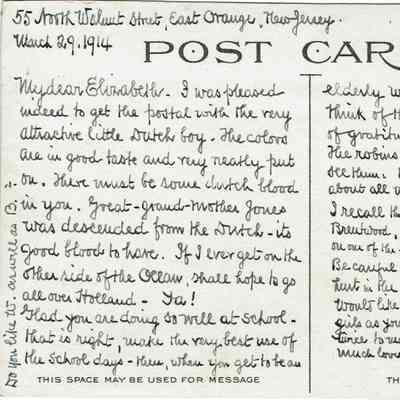 55 North Walnut Street, East Orange, New Jersey.
March 29. 1914
POST CAR
My dear Elizabeth - I was pleased
indeed to get the postal with the very
attractive little Dutch boy. The colors
are in good taste and very neatly put
on. There must be some dutch blood
in you. Great-grand-Mother Jones
was descended from the Dutch - its
good blood to have. If I ever get on the
other side of the Ocean, shall hope to go
all over Holland - Ya!
Glad you are doing so well at school -
that is right, make the very best use of
the school days - then, when you get to be an
THIS SPACE MAY BE USED FOR MESSAGE
elderly w
think of th
of gratitu
The robins
see them.
about all w
I recall th
Brentwood,
on one of the
Be careful
hurt in the
Would like
girls as you
twice to
much love
TH
Do you like W. as well as B.